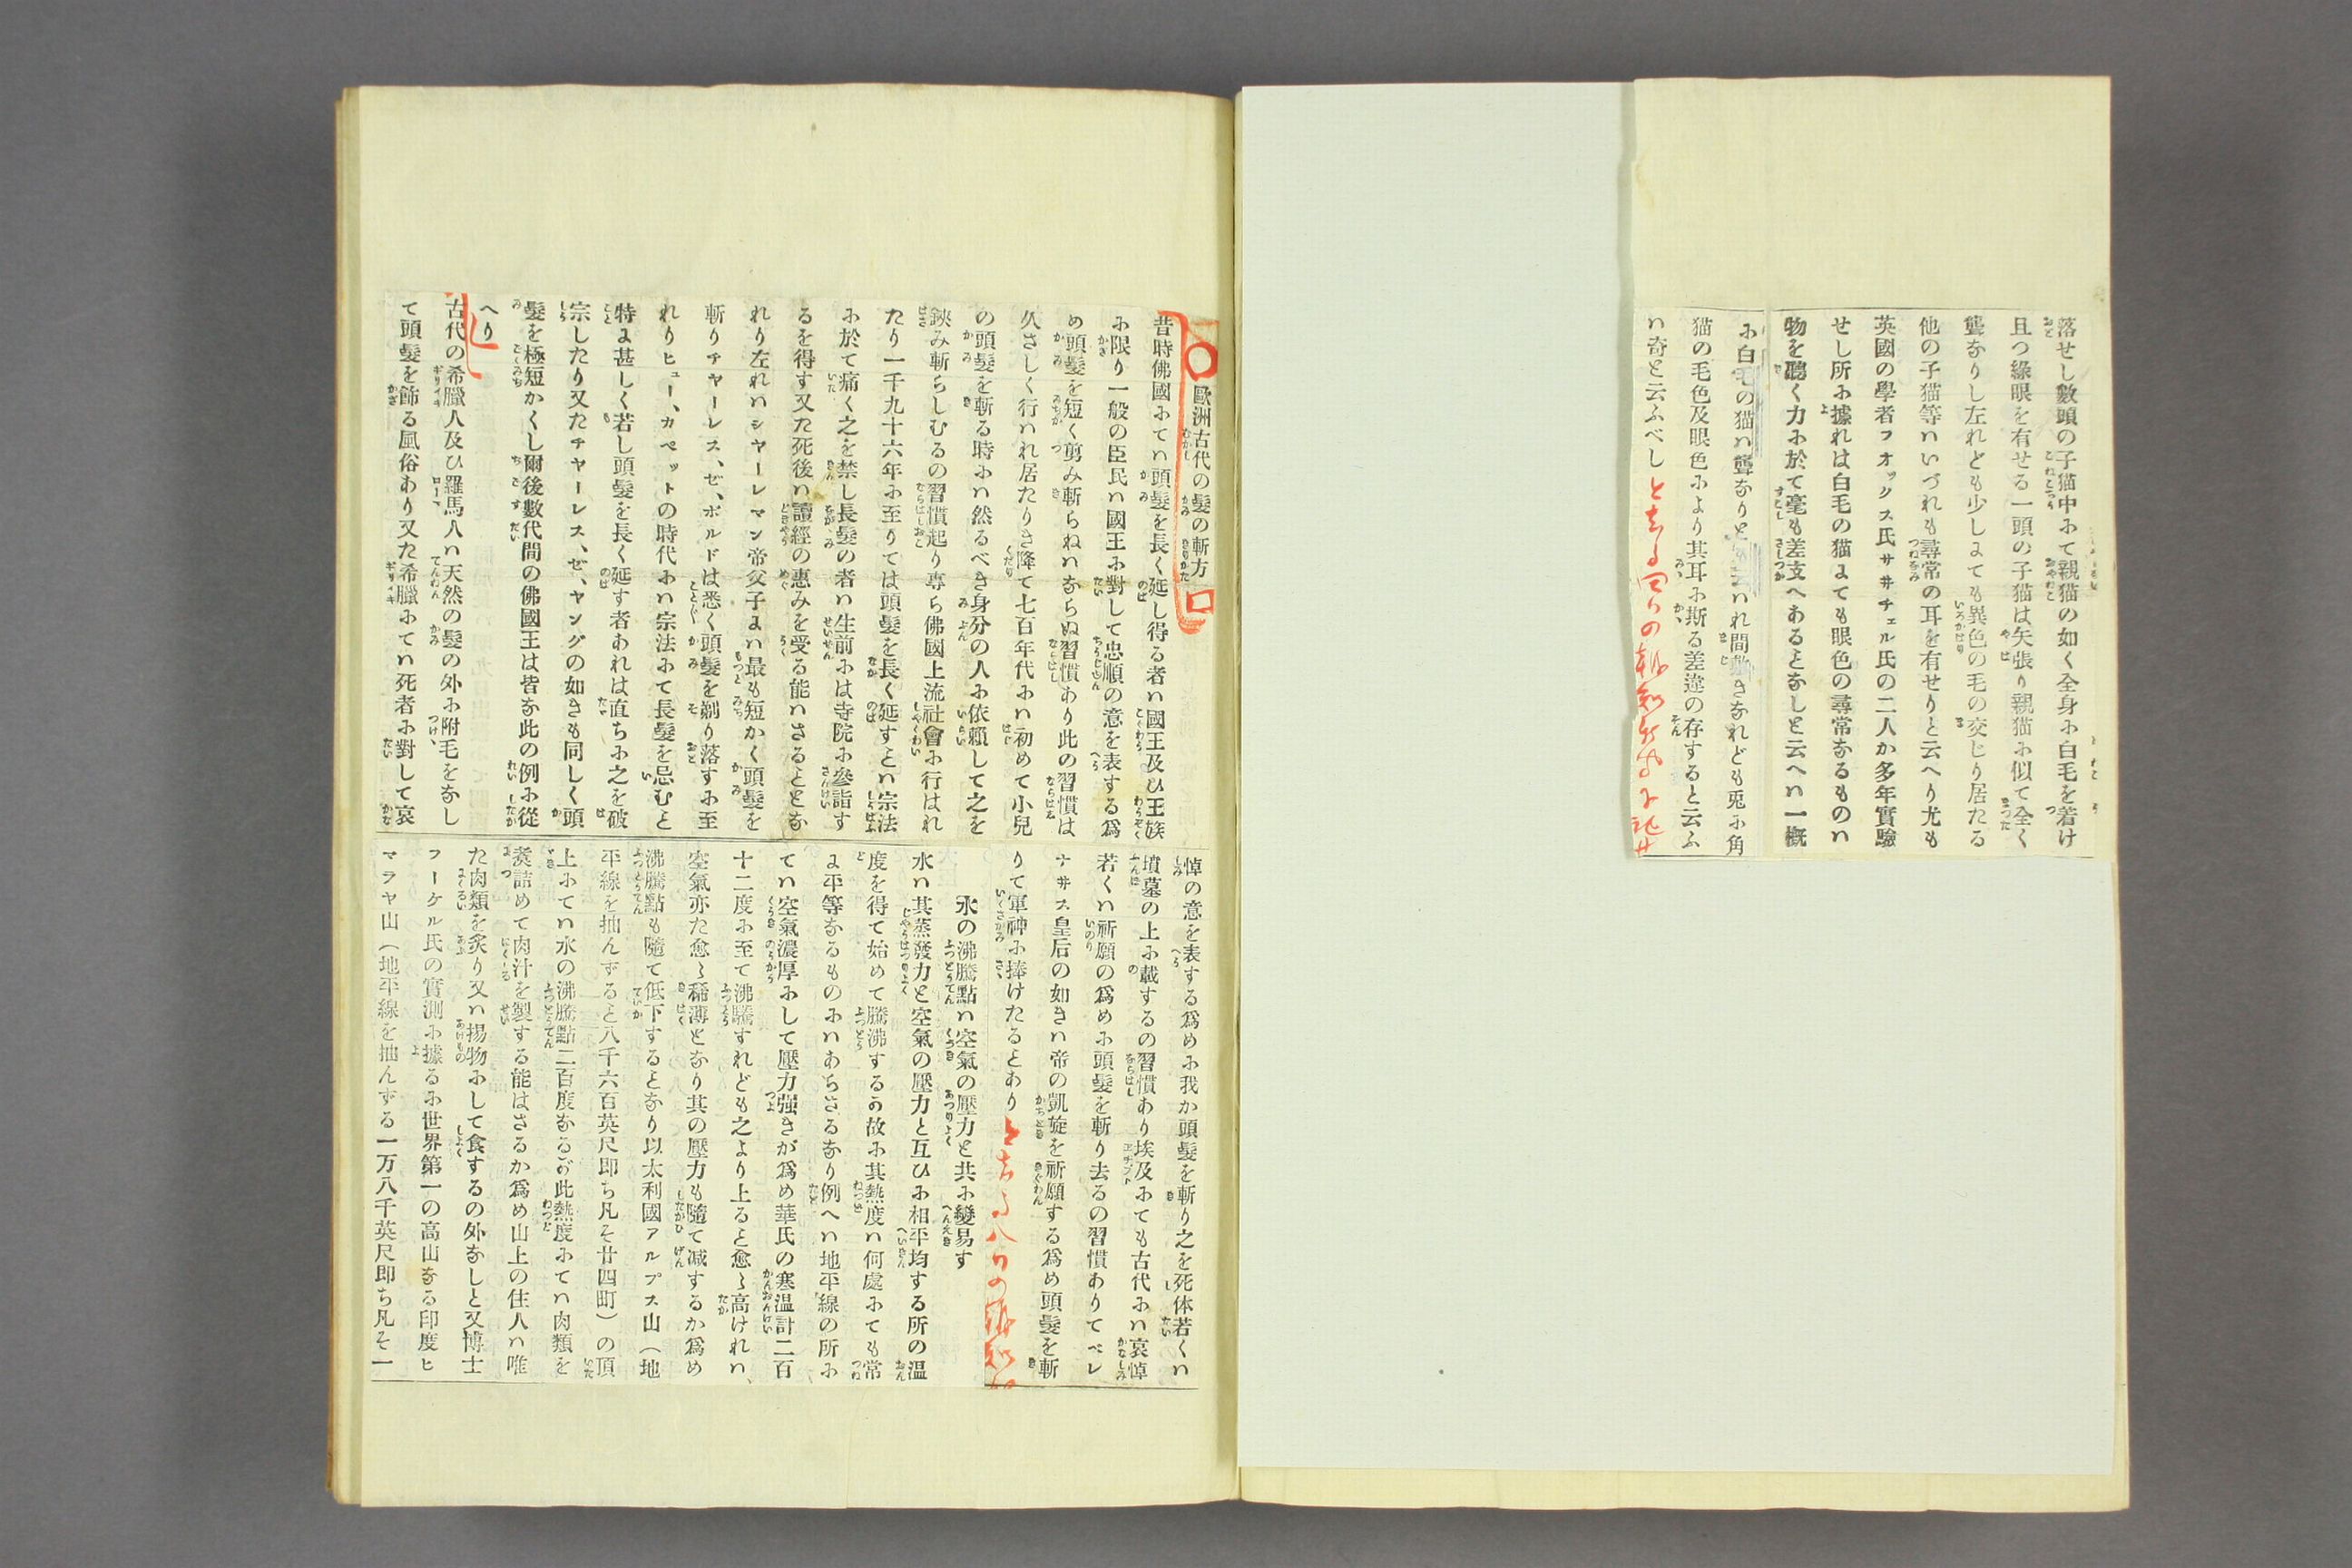 落せし數頭の子猫中みて親猫の如く全身み白毛を着け
且つ綠眼を有せる一頭の子猫は矢張り親猫み似て全く
聾なりし左れども少しにても異色の毛の交じり居たる
他の子猫等ハいづれも尋常の耳を有せりと云へり尤も
英國の學者フオックス氏サ井チェル氏の二人か多年實驗
せし所み據れは白毛の猫にても眼色の尋常なるものハ
物を聽く力み於て毫も差支へあるとなしと云へハ一概
み白毛の猫ハ聾なりと
れ間
きなれども兎み角
猫の毛色及眼色みより其耳み斯る差違の存すると云ふ
ハ奇と云ふべし
歐洲古代の髮の斬方
昔時佛國みてハ頭髮を長く延し得る者ハ國王及ひ王族
み限り一般の臣民ハ國王み對して忠順の意を表する爲
め頭髮を短く剪み斬らねハならぬ習慣あり此の習慣は
久さしく行ハれ居たりき降て七百年代みハ初めて小兒
の頭髮を斬る時みハ然るべき身分の人み依賴して之を
鋏み斬らしむるの習慣起り專ら佛國上流社會み行はれ
たり一千九十六年み至りては頭髮を長く延すとハ宗法
み於て痛く之を禁し長髮の者ハ生前みは寺院み參詣す
るを得す又た死後ハ讀經の惠みを受る能ハさるとゝな
れり左れハシヤーレマン帝父子にハ最も短かく頭髮を
斬りチヤーレス、ゼ、ボルドは悉く頭髮を剃り落すみ至
れりヒュー、カペットの時代みハ宗法みて長髮を忌むと
特に甚しく若し頭髮を長く延す者あれは直ちみ之を破
宗したり又たチヤーレス、ゼ、ヤングの如きも同しく頭
髮を極短かくし爾後數代間の佛國王は皆な此の例み從
へり
古代の希臘人及ひ羅馬人ハ天然の髮の外み附毛をなし
て頭髮を飾る風俗あり又た希臘みてハ死者み對して哀
悼の意を表する爲めみ我か頭髮を斬り之を死体若くハ
墳墓の上み載するの習慣あり埃及みても古代みハ哀悼
若くハ祈願の爲めみ頭髮を斬り去るの習慣ありてベレ
ナ井ス皇后の如きハ帝の凱旋を祈願する爲め頭髮を斬
りて軍神み捧けたるとあり
水の沸騰點ハ空氣の壓力と共み變易す
水ハ其蒸發力と空氣の壓力と互ひみ相平均する所の温
度を得て始めて騰沸するの故み其熱度ハ何處みても常
に平等なるものみハあらさるなり例へハ地平線の所み
てハ空氣濃厚みして壓力强きが爲め華氏の寒温計二百
十二度み至て沸騰すれども之より上ると愈〻高けれハ、
空氣亦た愈〻稀薄となり其の壓力も隨て减するか爲め
沸騰點も隨て低下するとなり以太利國アルプス山（地
平線を抽んずると八千六百英尺即ち凡そ廿四町）の頂
上みてハ水の沸騰點二百度なるが此熱度みてハ肉類を
煑詰めて肉汁を製する能はさるか爲め山上の住人ハ唯
た肉類を炙り又ハ揚物みして食するの外なしと又博士
フーケル氏の實測み據るみ世界第一の高山なる印度ヒ
マラヤ山（地平線を抽んずる一万八千英尺即ち凡そ一